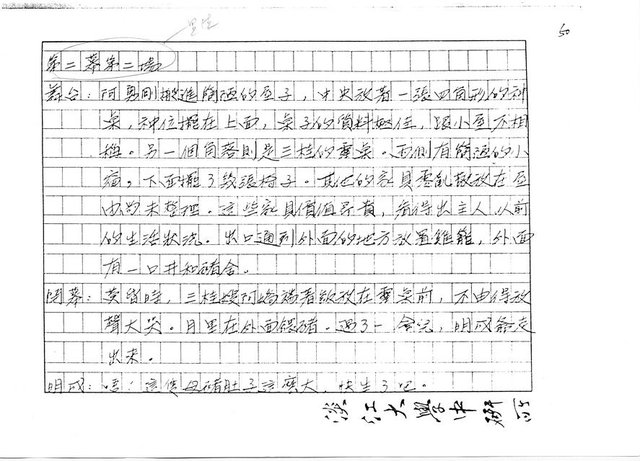 50
第二幕第二場
舞台：阿勇剛搬進簡陋的屋子，中央放著一張四角形的神
桌，神位擺在上面，桌子的質料極佳，跟小屋不相
稱。另一個角落則是三桂的靈桌。西側有簡陋的小
窗，下面擺了幾張椅子。其他的家具零亂散放在屋
內尚未整理。這些家具價值昂貴，看得出主人以前
的生活狀況。出口通到外面的地方放置雞籠，外面
有一口井和豬舍。
開幕：黃昏時，三桂嫂阿 端著飯放在靈桌前，不由得放
聲大哭。月里在外面餵豬。過了一會兒，明成爺走
出來。
明成：唔！這隻母豬肚子這麼大，快生了吧。
淡江大學中研所